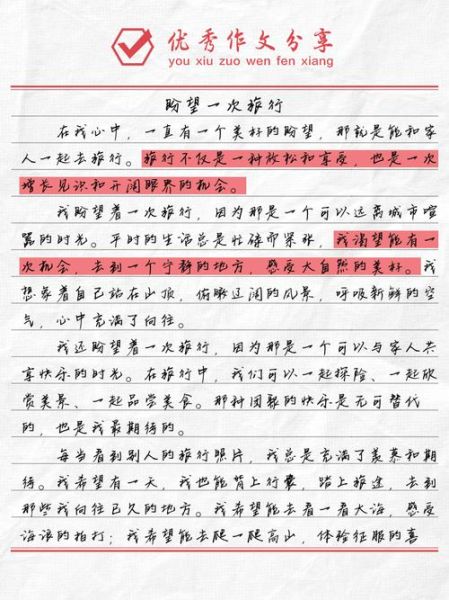 优秀作文分享
you xiu zuo wen fen xiang
盼望一次旅行
在我心中，一直有一个美好的盼望，那就是能和家
人一起去旅行。旅行不仅是一种放松和享受，也是一次
增长见识和开阔眼界的机会。
我盼望着一次旅行，因为那是一个可以远离城市喧
嚣的时光。平时的生活总是忙碌而紧张，我渴望能有一
次机会，去到一个宁静的地方，感受大自然的美好。我
想象着自己站在山顶，俯瞰辽阔的风景，呼吸新鲜的空
气，心中充满了向往。
我还盼望着一次旅行，因为那是一个可以与家人共
享快乐的时光。在旅行中，我们可以一起探险、一起欣
赏美景、一起品尝美食。那种团聚的快乐是无可替代
的，也是我最期待的。
每当看到别人的旅行照片，我总是充满了羡慕和期
待。我希望有一天，我也能背上行囊，踏上旅途，去到
那些我向往已久的地方。我希望能去看一看大海，感受
海浪的拍打；我希望能去爬一爬高山，体验征服的喜